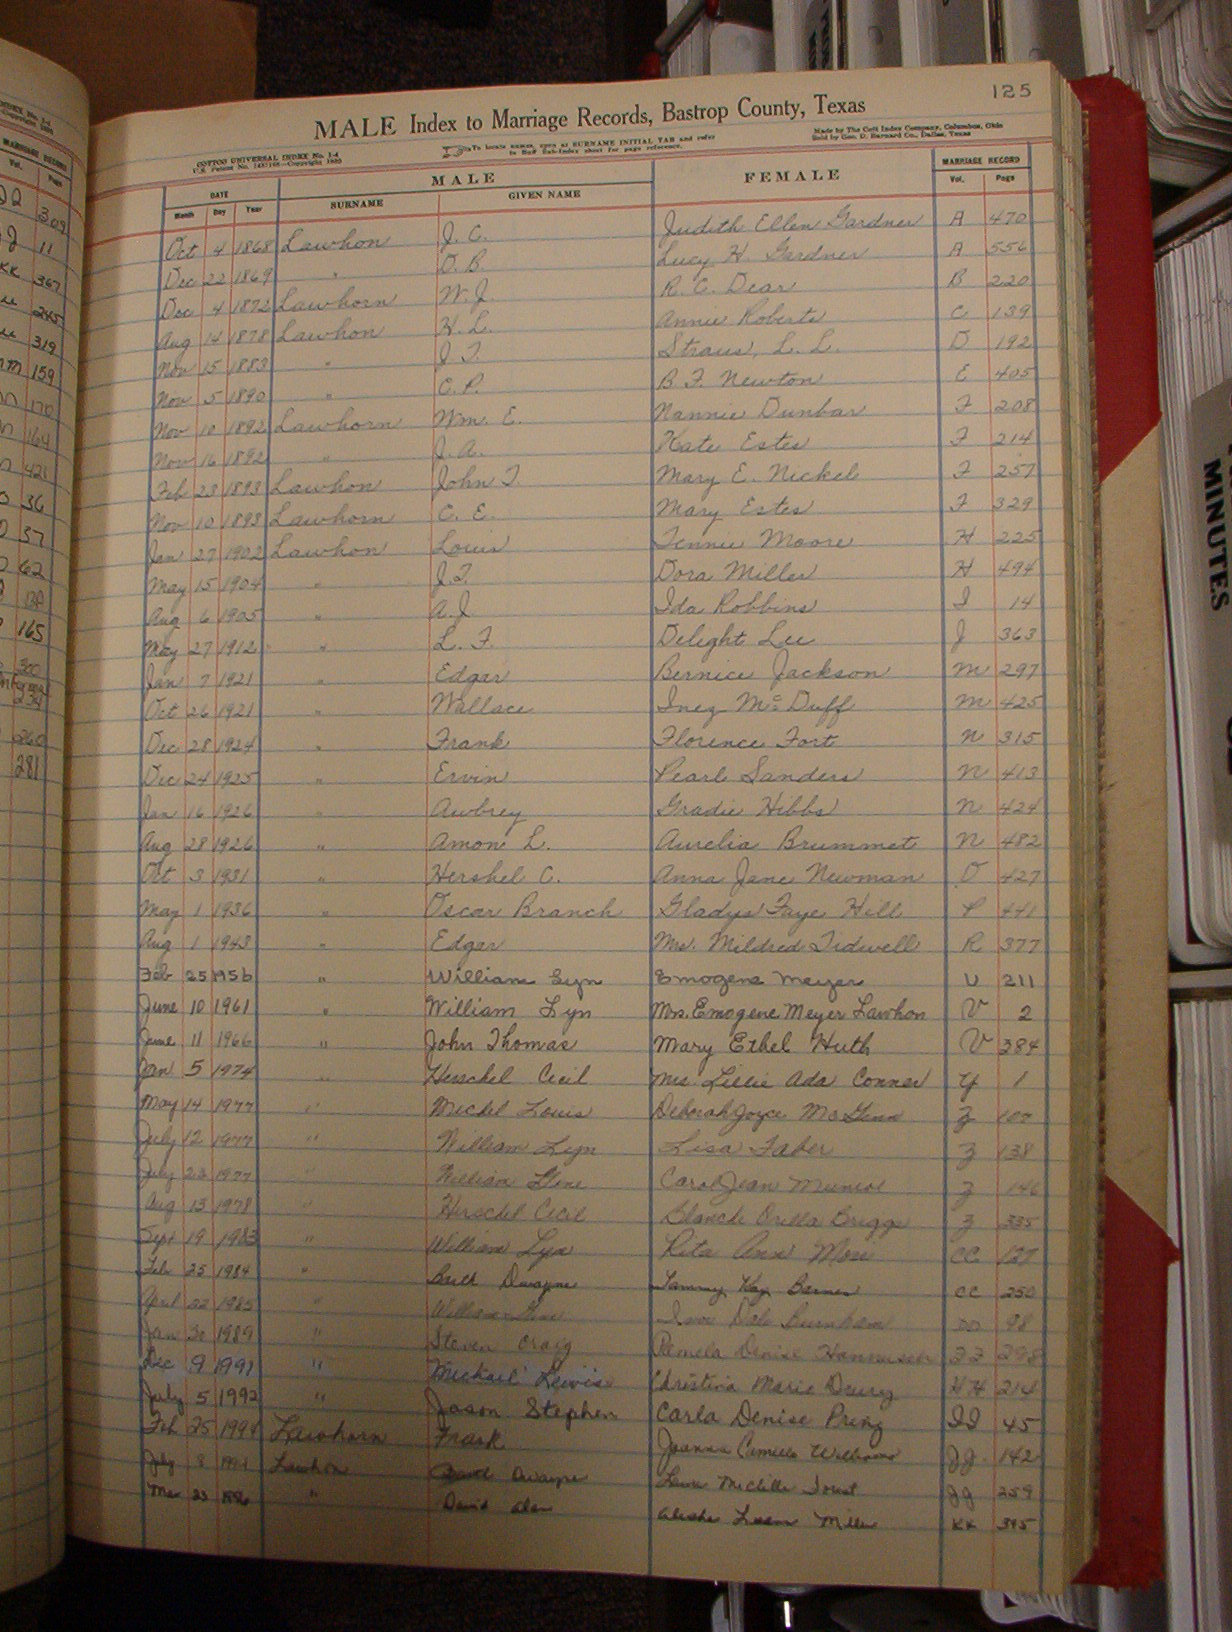 125
MALE Index to Marriage Records, Bastrop County, Texas
COTTON UNIVERSAL INDEX No. 1-4
To locate names, open at SURNAME INITIAL TAB and refer
to Buff Sub-Index sheet for page reference.
Made by The Cott Index Company, Columbus, Ohio
Sold by Geo. D. Barnard Co., Dallas, Texas
DATE MALE FEMALE MARRIAGE RECORD
Month Day Year SURNAME GIVEN NAME Vol. Page
Oct 4 1868 Lawhon J. C. Judith Ellen Gardner A 470
Dec 22 1869 " O. B. Lucy H. Gardner A 556
Dec 4 1872 Lawhorn W. J. R. C. Dear B 220
Aug 14 1878 Lawhon H. L. Annie Roberts C 139
Nov 15 1883 " J. T. Straus, L. L. D 192
Nov 5 1890 " C. P. B. F. Newton E 405
Nov 10 1892 Lawhorn Wm. E. Nannie Dunbar F 208
Nov 16 1892 " J. A. Kate Estes F 214
Feb 23 1893 Lawhon John T. Mary E. Nickel F 257
Nov 10 1893 Lawhorn C. E. Mary Estes F 329
Jan 27 1902 Lawhon Louis Tennie Moore H 225
May 15 1904 " J. T. Dora Miller H 494
Aug 6 1905 " A. J. Ida Robbins I 14
May 27 1912 " L. F. Delight Lee J 363
Jan 7 1921 " Edgar Bernice Jackson M 297
Oct 26 1921 " Wallace Inez McDuff M 425
Dec 28 1924 " Frank Florence Fort N 315
Dec 24 1925 " Ervin Pearl Sanders N 413
Jan 16 1926 " Awbrey Gradie Hibbs N 424
Aug 28 1926 " Amon L. Aurelia Brummet N 482
Oct 3 1931 " Hershel C. Anna Jane Newman O 427
May 1 1936 " Oscar Branch Gladys Faye Hill P 441
Aug 1 1943 " Edgar Mrs. Mildred Tidwell R 377
Feb 25 1956 " William Lyn Emogene Meyer U 211
June 10 1961 " William Lyn Mrs. Emogene Meyer Lawhon V 2
June 11 1966 " John Thomas Mary Ethel Huth V 384
Jan 5 1974 " Herschel Cecil Mrs. Lillie Ada Conner Y 1
May 14 1977 " Michel Louis Deborah Joyce Z 107
July 12 1977 " William Lyn Lisa Faber Z 138
July 23 1977 " William Gene Carol Jean Munroe Z 146
Aug 13 1978 " Herschel Cecil Blanche Orella Briggs Z 335
Sept 19 1983 " William Lyn Rita Ann CC 127
Feb 25 1984 " Dwayne Tammy Kay Barnes CC 250
April 22 1985 " William Gene Dale Burnham DD 98
Jan 30 1989 " Steven Craig Pamela Denise FF 298
Dec 9 1991 " Michael Lewis Christina Marie Drury HH 214
July 5 1992 " Jason Stephen Carla Denise Pring II 45
Feb 25 1994 Lawhorn Frank Joanna Camille Williams JJ 142
July 8 Lawhon Dwayne Michelle JJ 259
Mar 23 1996 " David Alan Miller KK 395
MINUTES